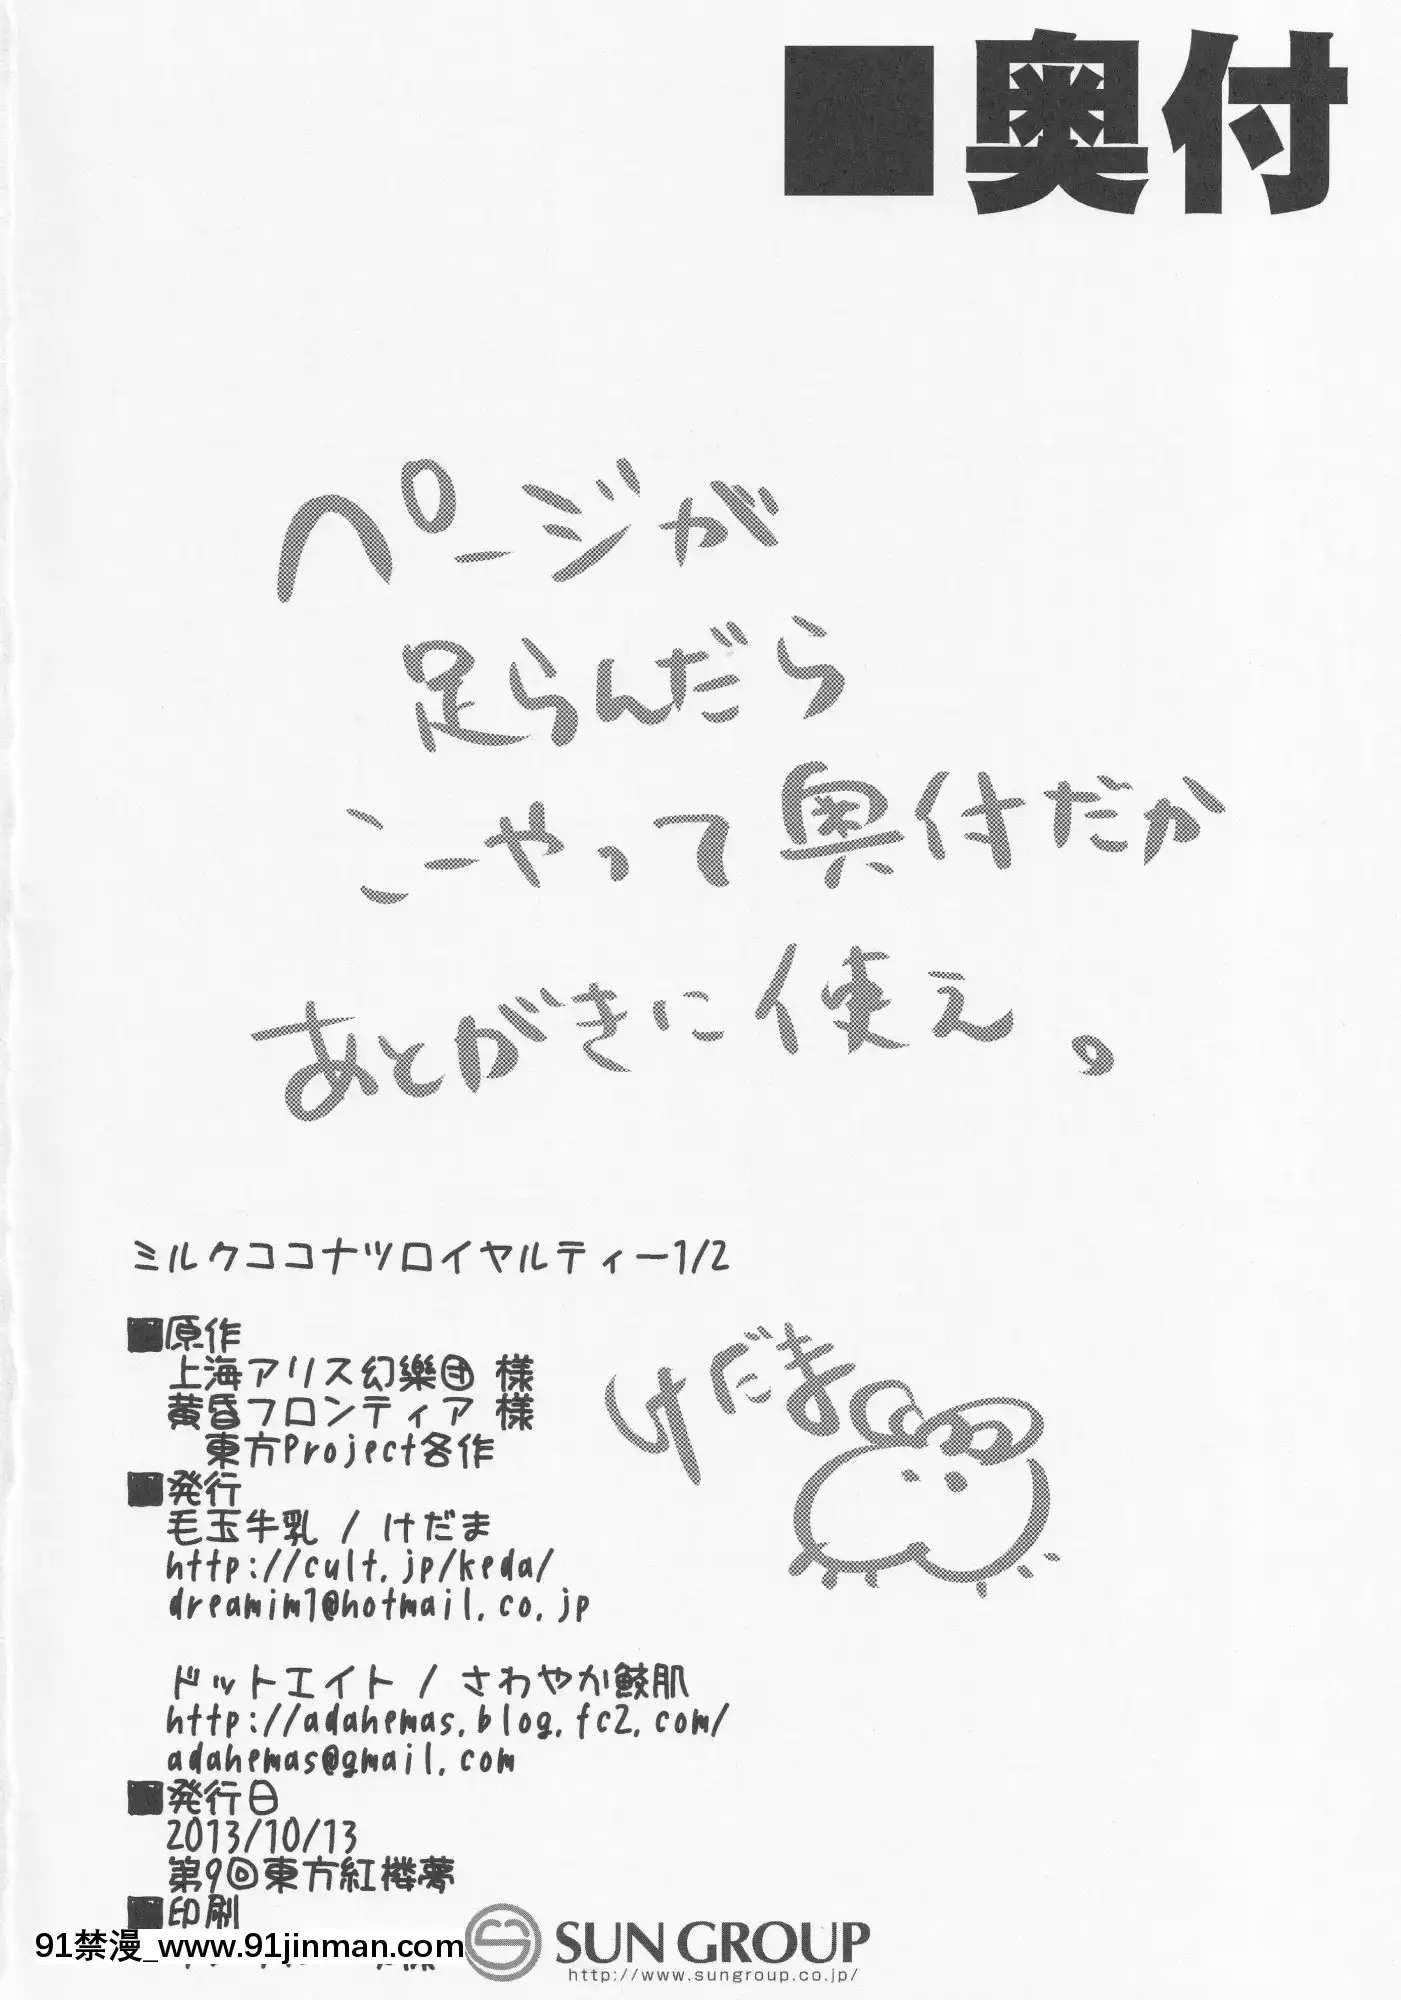 ■奥付
ページが
足らんだら
こーやって奥付だか
あとがきに使え。
ミルクココナツロイヤルティー1/2
■原作
上海アリス幻樂団 様
黄昏フロンティア 様
東方Project各作
けだま
■発行
毛玉牛乳 / けだま
http://cult.jp/keda/
dreamim1@hotmail.co.jp
ドットエイト / さわやか鮫肌
http://adahemas.blog.fc2.com/
adahemas@gmail.com
■発行日
2013/10/13
第9回東方紅楼夢
■印刷
91禁漫_www.91jinman.com
SUN GROUP
http://www.sungroup.co.jp/